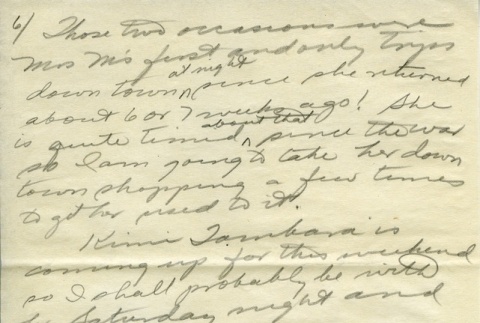 6/ Those two occasions were
Mrs M's first and only trips
down town at night since she returned
about 6 or 7 weeks ago! She
is quite timid about that since the war
so I am going to take her down
town shopping a few times
to get her used to it.
Kimi Tambara is
coming up for this weekend
so I shall probably be with
Saturday night and